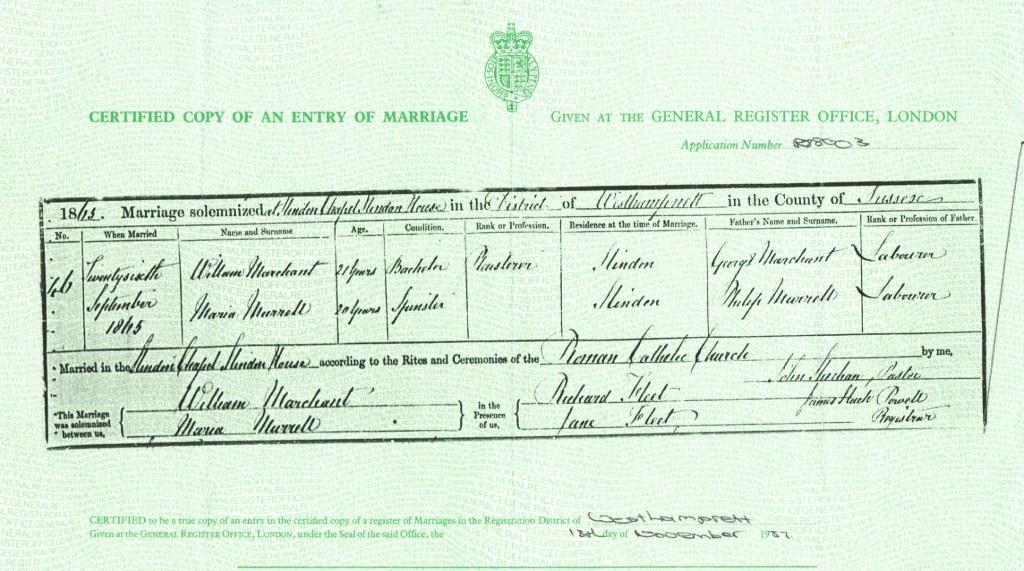 CERTIFIED COPY OF AN ENTRY OF MARRIAGE
GIVEN AT THE GENERAL REGISTER OFFICE, LONDON
Application Number
1845. Marriage solemnized at Slindon Chapel Slindon House in the District of Westhampnett in the County of Sussex
No. When Married Name and Surname Age. Condition. Rank or Profession. Residence at the time of Marriage. Father's Name and Surname. Rank or Profession of Father.
46 Twentysixth September 1845
William Marchant 21 years Bachelor Plasterer Slindon George Marchant Labourer
Maria Murrell 20 years Spinster Slindon Philip Murrell Labourer
Married in the Slindon Chapel Slindon House according to the Rites and Ceremonies of the Roman Catholic Church by me,
John Sheehan, Pastor
This Marriage was solemnized between us,
William Marchant
Maria Murrell
in the Presence of us,
Richard Fleet
Jane Fleet
James Powell
Registrar
CERTIFIED to be a true copy of an entry in the certified copy of a register of Marriages in the Registration District of Westhampnett
Given at the GENERAL REGISTER OFFICE, LONDON, under the Seal of the said Office, the day of November 1987